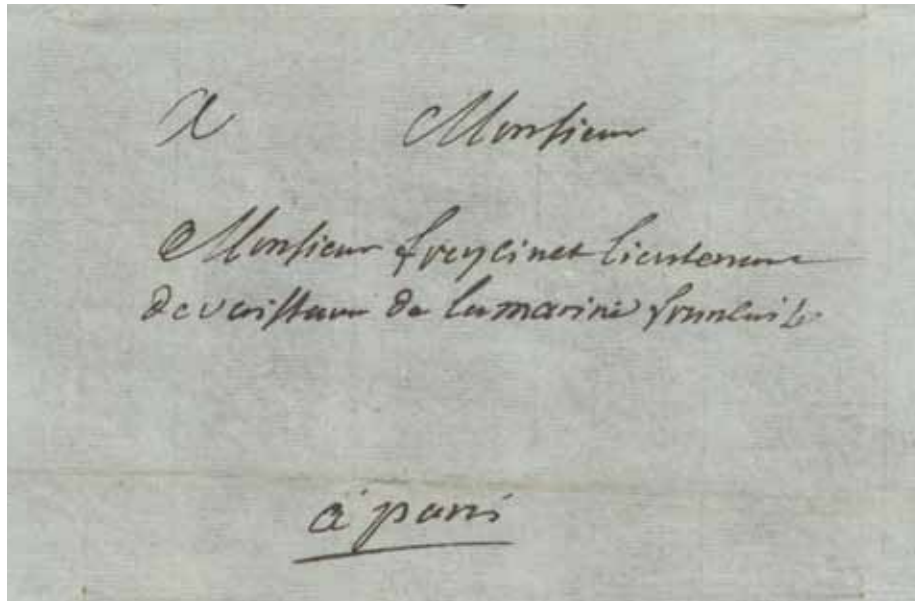 A Monsieur
Monsieur freycinet lieutenant
de vaisseau de la marine francaise
à paris